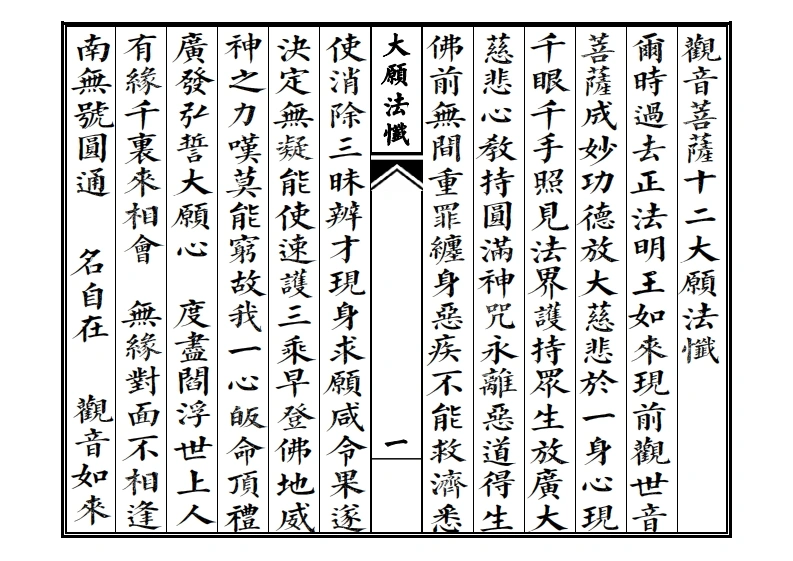 觀音菩薩十二大願法懺
爾時過去正法明王如來現前觀世音
菩薩成妙功德放大慈悲於一身心現
千眼千手照見法界護持眾生放廣大
慈悲心教持圓滿神咒永離惡道得生
佛前無間重罪纏身惡疾不能救濟悉
大願法懺 一
使消除三昧辨才現身求願咸令果遂
決定無疑能使速護三乘早登佛地威
神之力嘆莫能窮故我一心皈命頂禮
廣發弘誓大願心 度盡閻浮世上人
有緣千裏來相會 無緣對面不相逢
南無號圓通 名自在 觀音如來